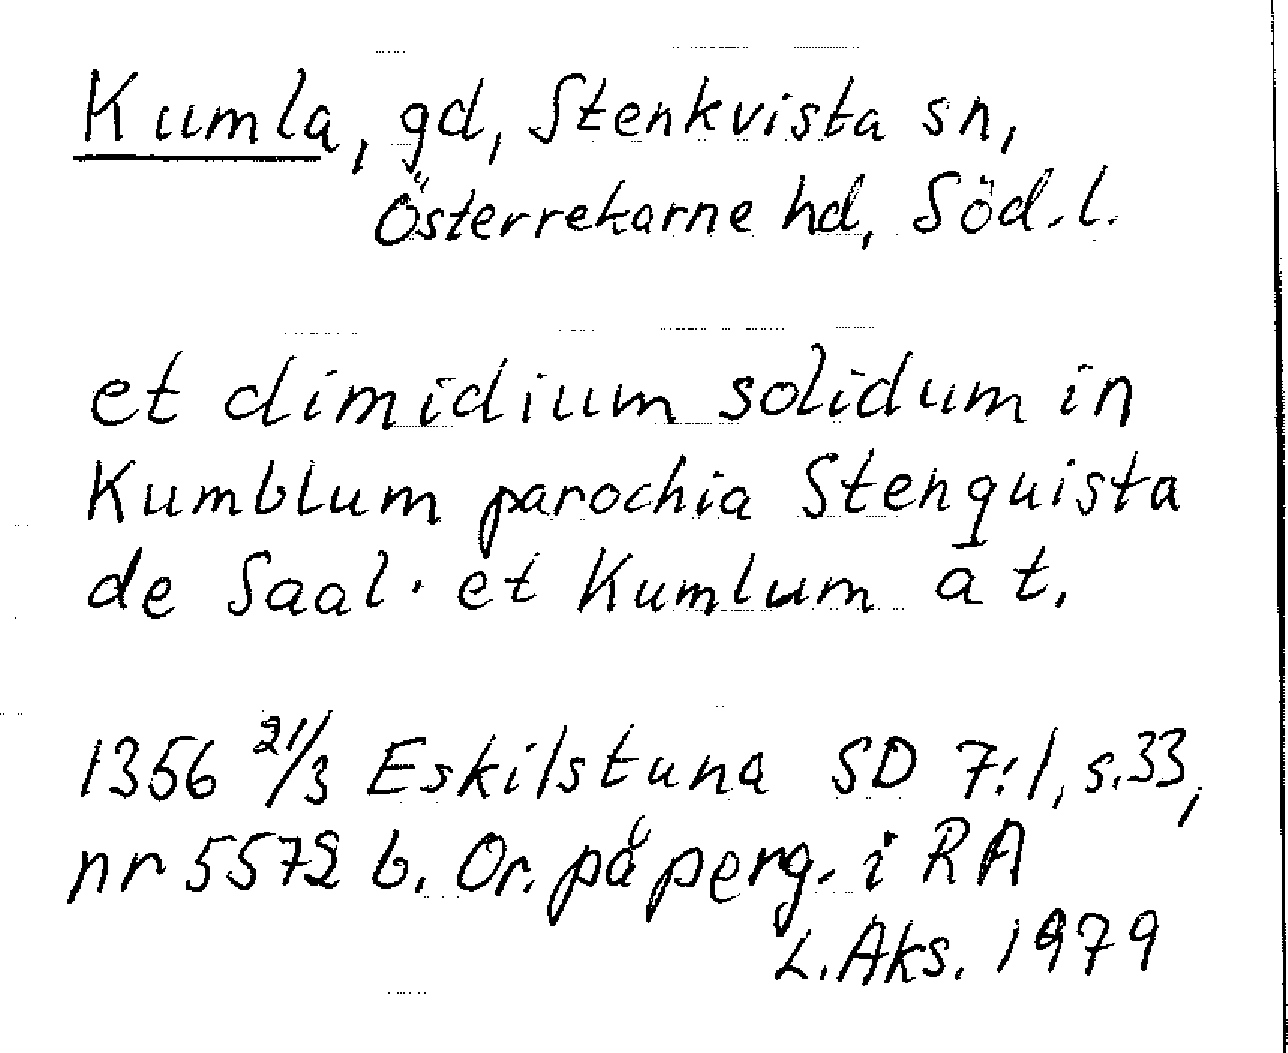 Kumla, gd, Stenkvista sn,
Österrekarne hd, Söd.l.
et dimidium solidum in
Kumblum parochia Stenquista
de Saal. et Kumlum a t.
1356 21/3 Eskilstuna SD 7:1, s.33,
nr 5572 b. Or. på perg. i RA
L. Aks. 1979